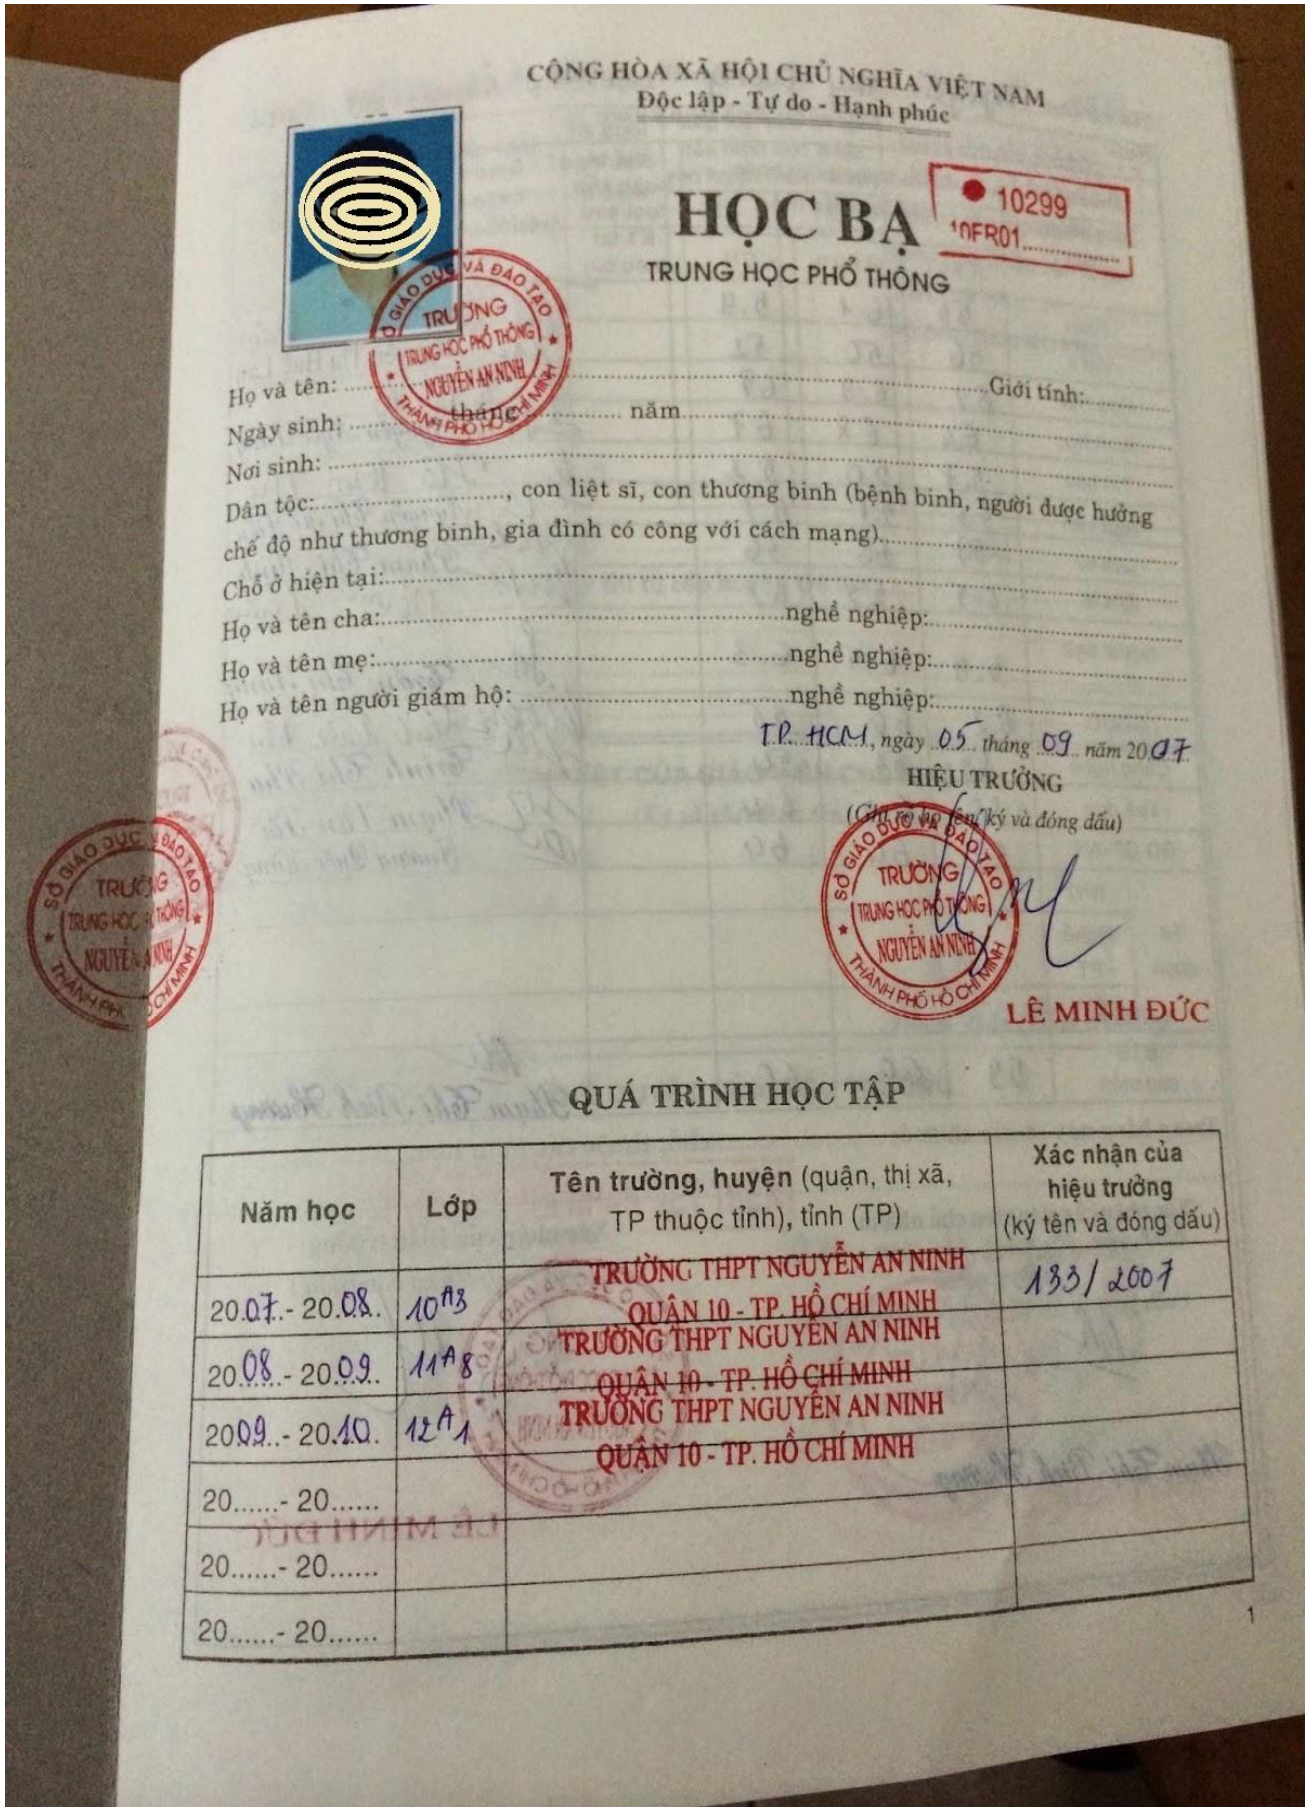 CỘNG HÒA XÃ HỘI CHỦ NGHĨA VIỆT NAM
Độc lập - Tự do - Hạnh phúc
10299
10FR01
HỌC BẠ
TRUNG HỌC PHỔ THÔNG
SỞ GIÁO DỤC VÀ ĐÀO TẠO
TRƯỜNG
TRUNG HỌC PHỔ THÔNG
NGUYỄN AN NINH
THÀNH PHỐ HỒ CHÍ MINH
Họ và tên: Giới tính:
Ngày sinh: tháng năm
Nơi sinh:
Dân tộc:, con liệt sĩ, con thương binh (bệnh binh, người được hưởng
chế độ như thương binh, gia đình có công với cách mạng)
Chỗ ở hiện tại:
Họ và tên cha: nghề nghiệp:
Họ và tên mẹ: nghề nghiệp:
Họ và tên người giám hộ: nghề nghiệp:
TP. HCM, ngày 05 tháng 09 năm 2007
HIỆU TRƯỞNG
(Ghi rõ họ tên, ký và đóng dấu)
SỞ GIÁO DỤC VÀ ĐÀO TẠO
TRƯỜNG
TRUNG HỌC PHỔ THÔNG
NGUYỄN AN NINH
THÀNH PHỐ HỒ CHÍ MINH
SỞ GIÁO DỤC VÀ ĐÀO TẠO
TRƯỜNG
TRUNG HỌC PHỔ THÔNG
NGUYỄN AN NINH
THÀNH PHỐ HỒ CHÍ MINH
LÊ MINH ĐỨC
QUÁ TRÌNH HỌC TẬP
Năm học Lớp Tên trường, huyện (quận, thị xã, TP thuộc tỉnh), tỉnh (TP) Xác nhận của hiệu trưởng (ký tên và đóng dấu)
2007 - 2008 10A3 TRƯỜNG THPT NGUYỄN AN NINH 133/2007
QUẬN 10 - TP. HỒ CHÍ MINH
2008 - 2009 11A8 TRƯỜNG THPT NGUYỄN AN NINH
QUẬN 10 - TP. HỒ CHÍ MINH
2009 - 2010 12A1 TRƯỜNG THPT NGUYỄN AN NINH
QUẬN 10 - TP. HỒ CHÍ MINH
20......- 20......
20......- 20......
20......- 20......
1